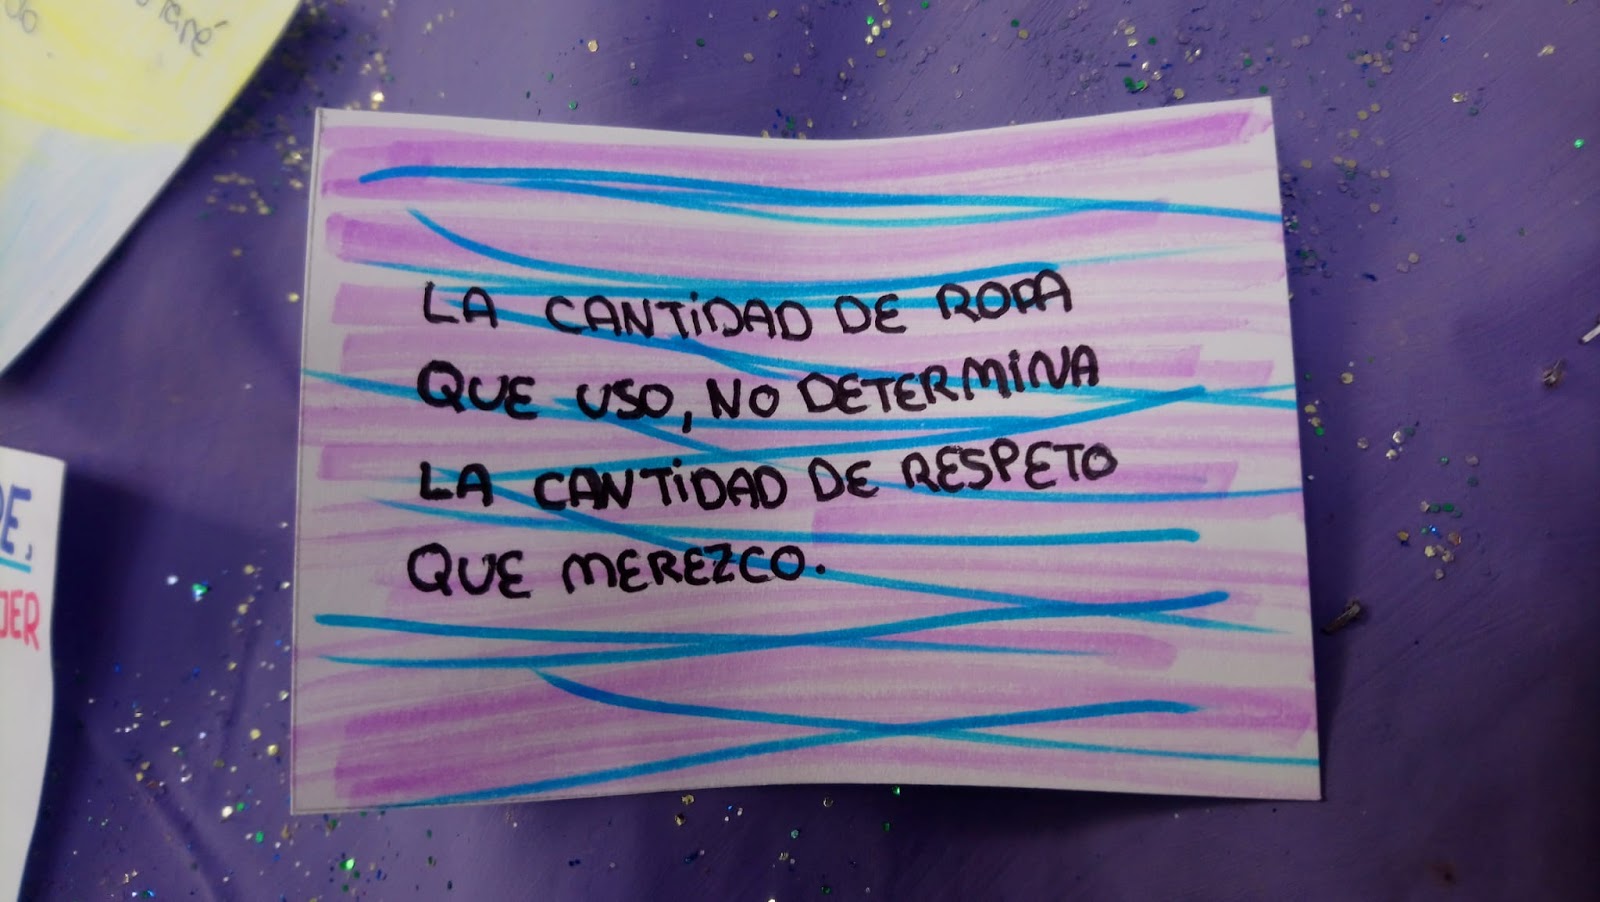 LA CANTIDAD DE ROPA
QUE USO, NO DETERMINA
LA CANTIDAD DE RESPETO
QUE MEREZCO.